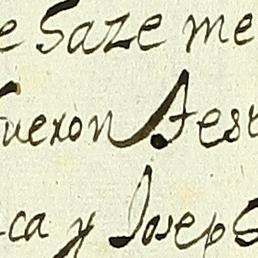 e haze me
fueron test
ca y Joseph